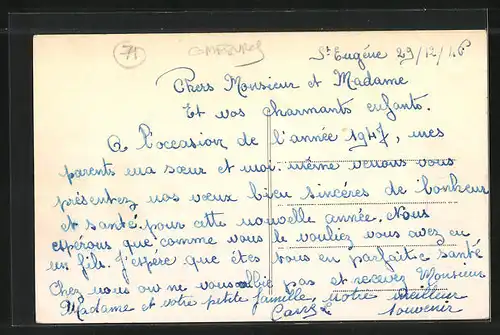 71
St Eugène 29/12/46
Chers Monsieur et Madame
Et vos charmants enfants.
A l'occasion de l'année 1947, mes
parents ma sœur et moi même venons vous
présentez nos vœux bien sincéres de bonheur
et santé pour cette nouvelle année. Nous
espérons que comme vous le vouliez vous avez eu
un fils. J'espère que êtes tous en parfaite santé
Chez vous on ne vous oublie pas et recevez Monsieur
Madame et votre petite famille, notre meilleur
souvenir